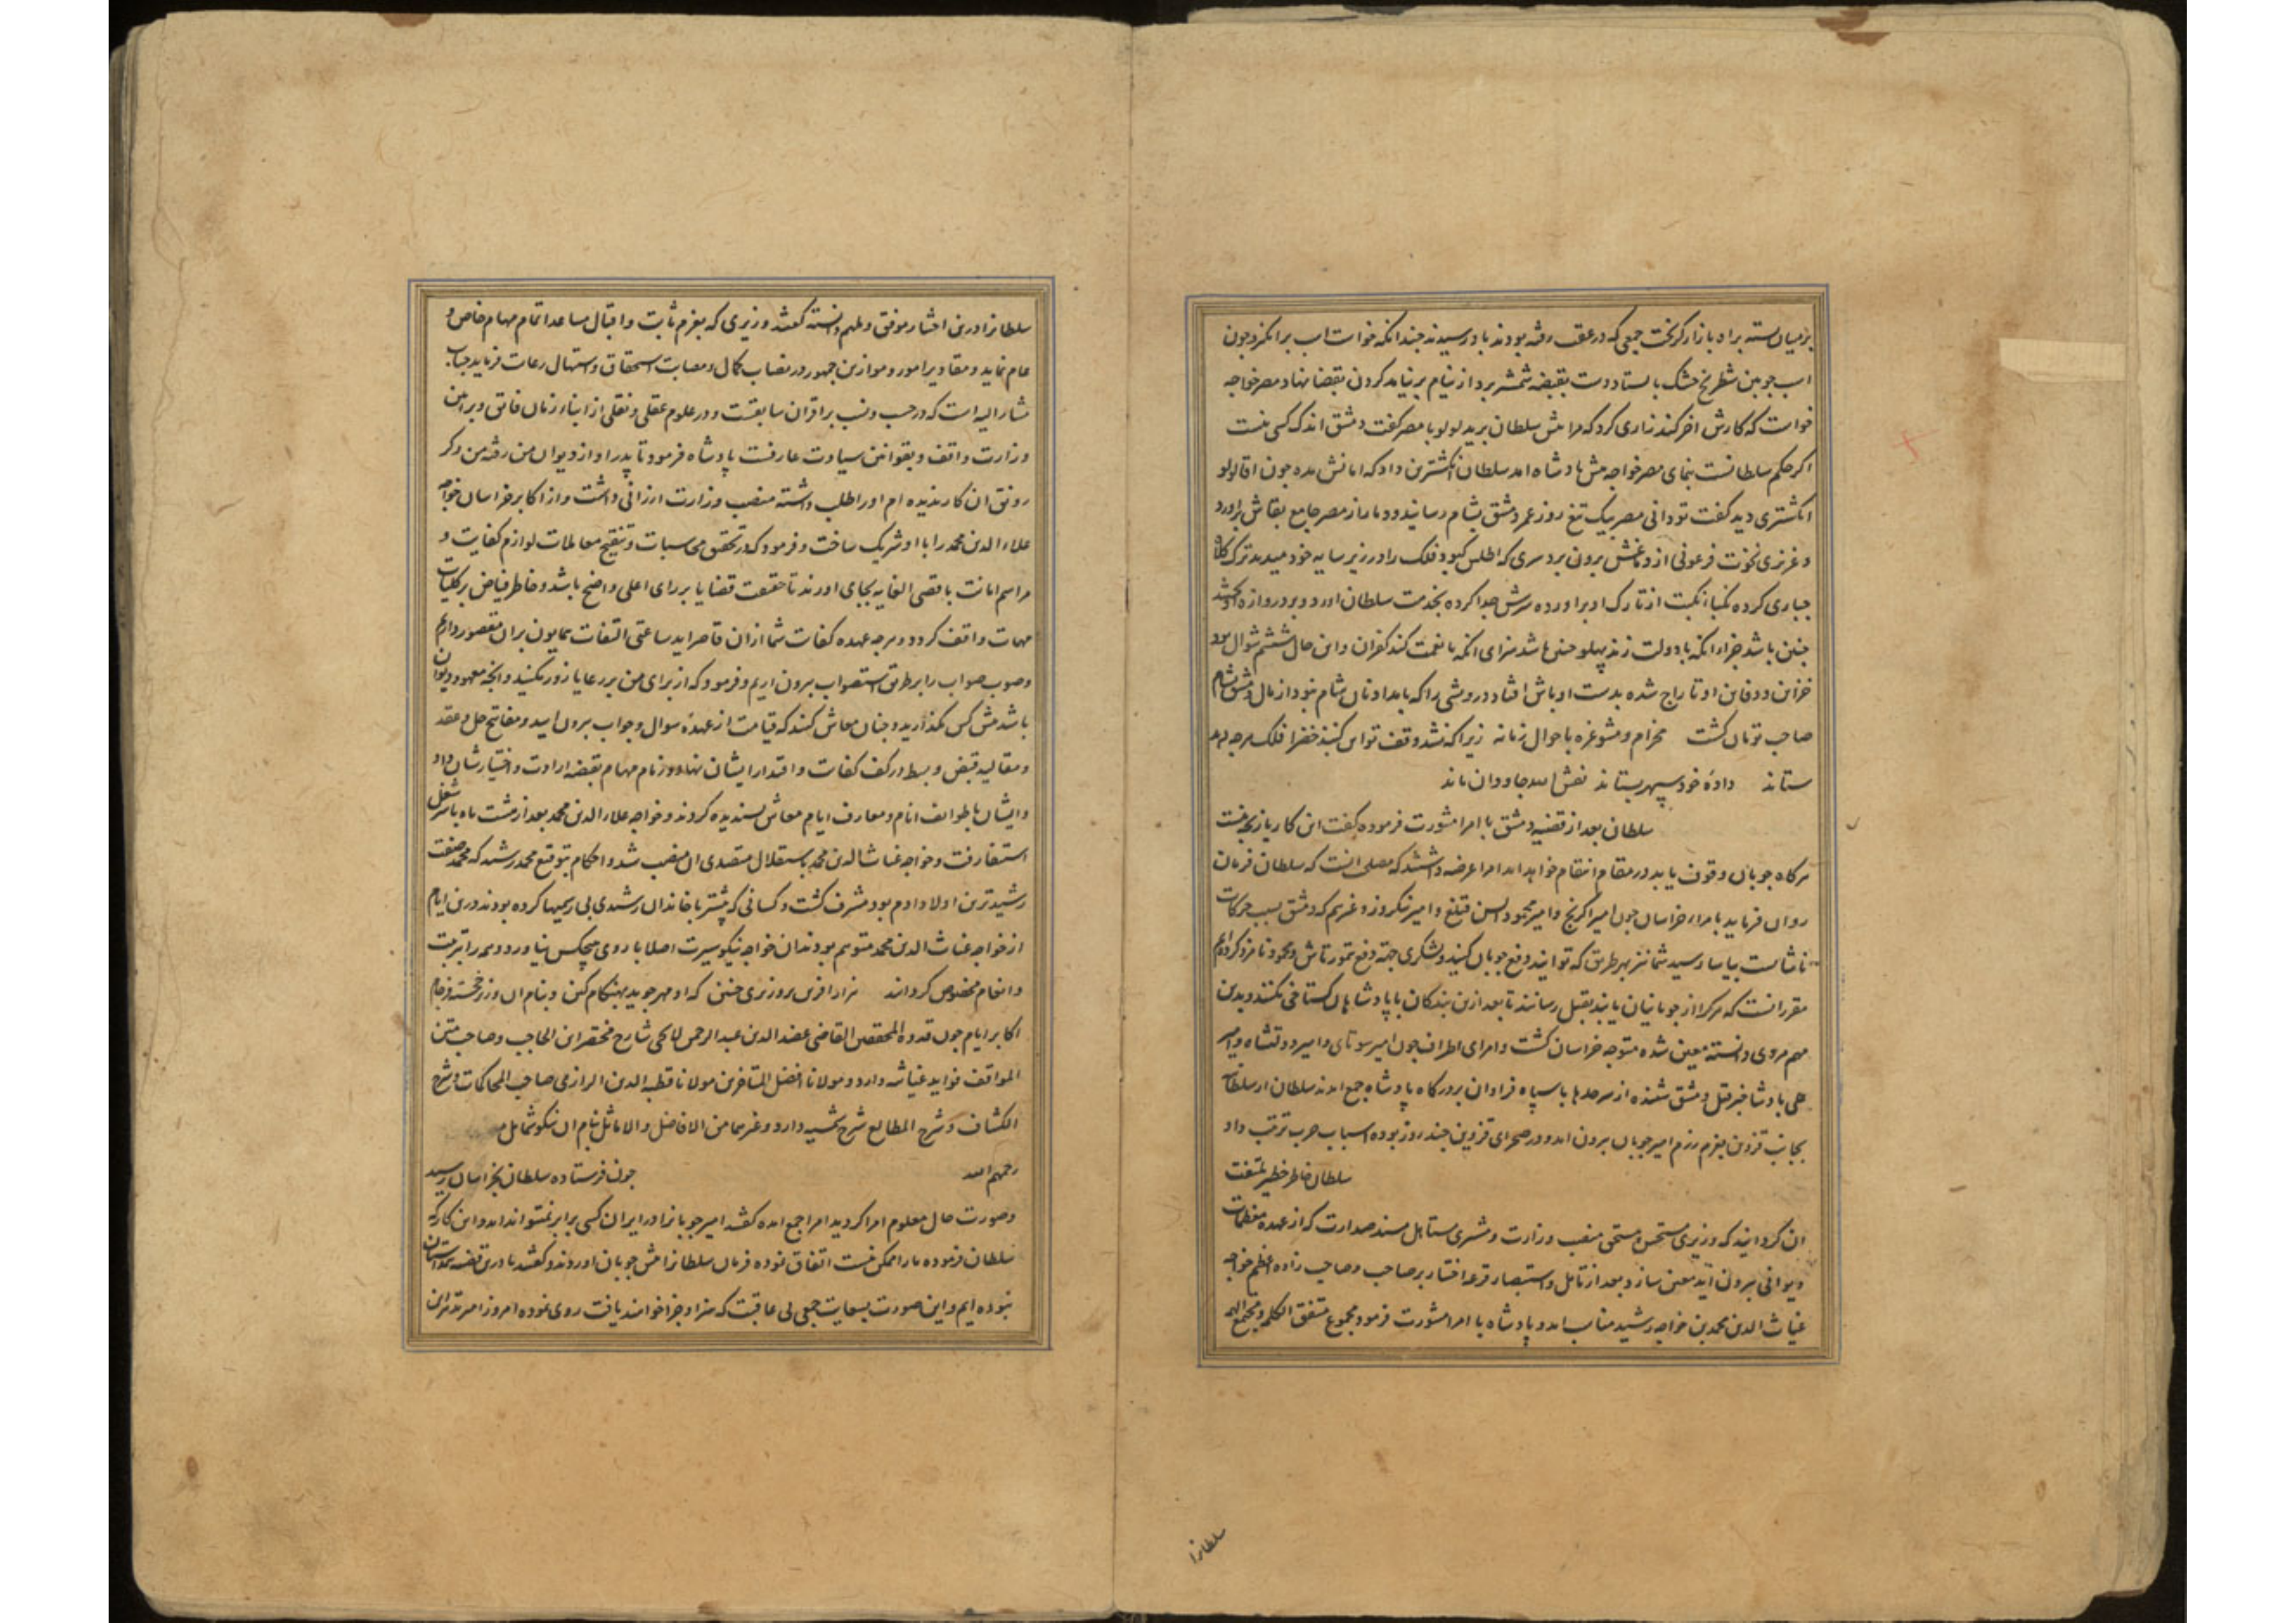 بر میان بسته براه بازار کریخت جمعی که در عقب رفته بودند باو رسیدند چندانکه خواست اسب برانکیزد چون
اسب چوبین شطرنج خشک بایستاد دست بقبضه شمشیر برد از نیام برنیامد کردن بقضا نهاد مصر خواجه
خواست که کارش اخر کند زاری کرد که مرا پیش سلطان برید لولو با مصر کفت دمشق اندک کسی نیست
اکر حکم سلطانست بنمای مصر خواجه پیش پادشاه امد سلطان انکشترین داد که امانش مده چون اقا لولو
انکشتری دید کفت تو دانی مصر بیک تیغ روز عمر دمشق بشام رسانید و دمار از مصر جامع بقاش براورد
و عزیزی نخوت فرعونی از دماغش برون برد سری که اطلس کبود فلک را در زیر سایه خود میدید ترک کلاه
جباری کرده نکبا نکبت از تارک او براورده سرش جدا کرده بخدمت سلطان اورد و بر دروازه اویختند
چنین باشد جزاء انکه با دولت زند پهلو چنین باشد سزای انکه با نعمت کند کفران و این حال ششم شوال بود
خزاین و دفاین او تاراج شده بدست اوباش افتاد درویشی را که بامداد نان شام نبود از مال دمشق شام
صاحب تومان کشت مخرام و مشو غره باحوال زمانه زیرا که نشد وقف تو این کنبذ خضرا فلک هرچه دهد
ستاند داده خود سپهر بستاند نقش الله جاودان ماند
سلطان بعد از قضیه دمشق با امرا مشورت فرموده کفت این کار بازیچه نیست
هرکاه چوبان وقوف یابد در مقام انتقام خواهد امد امرا عرضه داشتند که مصلحت انست که سلطان فرمان
روان فرماید بامراء خراسان چون امیر اکرنج و امیر محمود ایسن قتلغ و امیر نیکروز و غیرهم که دمشق بسبب حرکات
ناشایست بیاسا رسید شما نیز بهر طریق که توانید دفع چوبان کنید و لشکری جهة دفع تمورتاش و محمود نامزد کرده‌ایم
مقرر انست که هر کرا از چوبانیان یابند بقتل رسانند تا بعد ازین بندکان با پادشاهان کستاخی نکنند و بدین
مهم مردی دانسته معین شده متوجه خراسان کشت و امرای اطراف چون امیر سوتای و امیر دولتشاه و امیر
علی پادشا خبر قتل دمشق شنیده از سرحدها با سپاه فراوان بدرکاه پادشاه جمع امدند سلطان از سلطانیه
بجانب قزوین بعزم رزم امیر چوبان برون امد و در صحرای قزوین چند روز بوده اسباب حرب ترتیب داد
سلطان خاطر خطیر ملتفت
ان کردانید که وزیری مستحسن مستحق منصب وزارت و مشیری مستاهل مسند صدارت که از عهده معظمات
دیوانی برون آید معین سازد بعد از تامل و استبصار قرعه اختیار بر صاحب و صاحب زاده اعظم خواجه
غیاث الدین محمد بن خواجه رشید مناسب امد و پادشاه با امرا مشورت فرمود مجموع متفق الکلمه و مجتمع الهمه
سلطانرا
سلطانرا درین اختیار موفق و ملهم دانسته کفتند وزیری که بعزم ثابت و اقبال مساعد اتمام مهام خاص و
عام نماید و مقادیر امور و موازین جمهور در نصاب کمال و مصابت استحقاق و استیهال رعایت فرماید جناب
مشار الیه است که در حسب و نسب بر اقران سابقست و در علوم عقلی و نقلی از ابناء زمان فایق و براین
وزارت واقف و بقوانین سیادت عارفست پادشاه فرمود تا پدر او از دیوان من رفته من دکر
رونق ان کار ندیده ام او را طلب داشته منصب وزارت ارزانی داشت و از اکابر خراسان خواجه
علاء الدین محمد را با او شریک ساخت و فرمود که در تحقیق محاسبات و تنقیح معاملات لوازم کفایت و
مراسم امانت باقصی الغایه بجای اورند تا حقیقت قضایا بر رای اعلی واضح باشد و خاطر فیاض بر کلیات
مهمات واقف کردد و هرچه عهده کفایت شما از ان قاصر اید ساعتی التفات همایون بران مقصور داریم
وصوب صواب را بر طریق استصواب برون اریم و فرمود که از برای من بر رعایا زور نکنید و انچه معهود دیوان
باشد پیش کس نکذارید و چنان معاش کنند که قیامت از عهده سوال و جواب برون ایید و مفاتیح حل و عقد
و مقالید قبض و بسط در کف کفایت و اقتدار ایشان نهاد و زمام مهام بقبضه ارادت و اختیار شان داد
و ایشان با طوایف انام و معارف ایام معاش پسندیده کردند و خواجه علاء الدین محمد بعد از هشت ماه با سر شغل
استیفا رفت و خواجه غیاث الدین محمد باستقلال متصدی ان منصب شد و احکام بتوقیع محمد رشید که محمد صفت
رشیدترین اولاد ادم بود مشرف کشت و کسانی که پیشتر با خاندان رشیدی بی رسمیها کرده بودند درین ایام
از خواجه غیاث الدین محمد متوهم بودند ان خواجه نیکو سیرت اصلا با روی هیچکس نیاورد و همه را بتربیت
و انعام مخصوص کردانند هزار افرین بر وزیری چنین که او مهر جوید بهنکام کین و بنام ان وزیر خجسته فرجام
اکابر ایام چون قدوة المحققین القاضی عضد الدین عبد الرحمن لایجی شارح مختصر ابن الحاجب و صاحب متن
المواقف فواید غیاثیه دارد و مولانا افضل المتاخرین مولانا قطب الدین الرازی صاحب المحاکمات و شرح
الکشاف و شرح المطالع شرح شمسیه دارد و غیرهما من الافاضل و الاماثل بنام ان نیکو شمایل
رحمهم الله چون فرستاده سلطان بخراسان رسید
وصورت حال معلوم امرا کردید امرا جمع امده کفتند امیر چوبانرا در ایران کسی برابر نمیتواند امد و این کار که
سلطان فرموده ما را ممکن نیست اتفاق نموده فرمان سلطانرا پیش چوبان اوردند و کفتند ما درین قضیه همداستان
نبوده ایم و این صورت بسعایت جمعی بی عاقبت که سزا و جزا خواهند یافت روی نموده امروز امر تدبیر ان